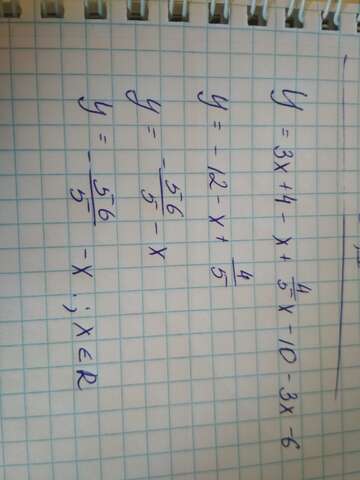 y = 3x + 4 - x + 4/5 x - 10 - 3x - 6
y = - 12 - x + 4/5
y = - 56/5 - x
y = - 56/5 - x ; x ∈ R